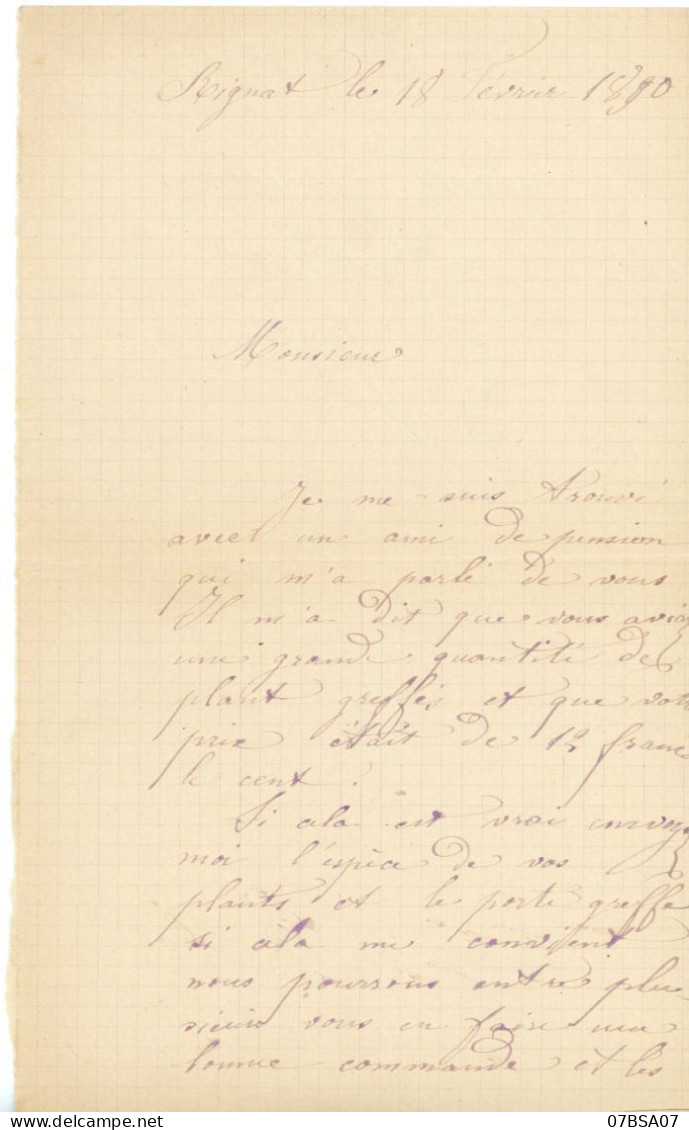 Rignat le 18 Février 1890
Monsieur
Je me suis trouvé
avec un ami de pension
qui m'a parlé de vous
Il m'a dit que vous aviez
une grande quantité de
plant greffés et que votre
prix était de 12 francs
le cent.
Si cela est vrai envoyez
moi l'espèce de vos
plants et le porte greffe
si cela me convient
nous pourrons entre plu-
sieurs vous en faire une
bonne commande et les
07BSA07